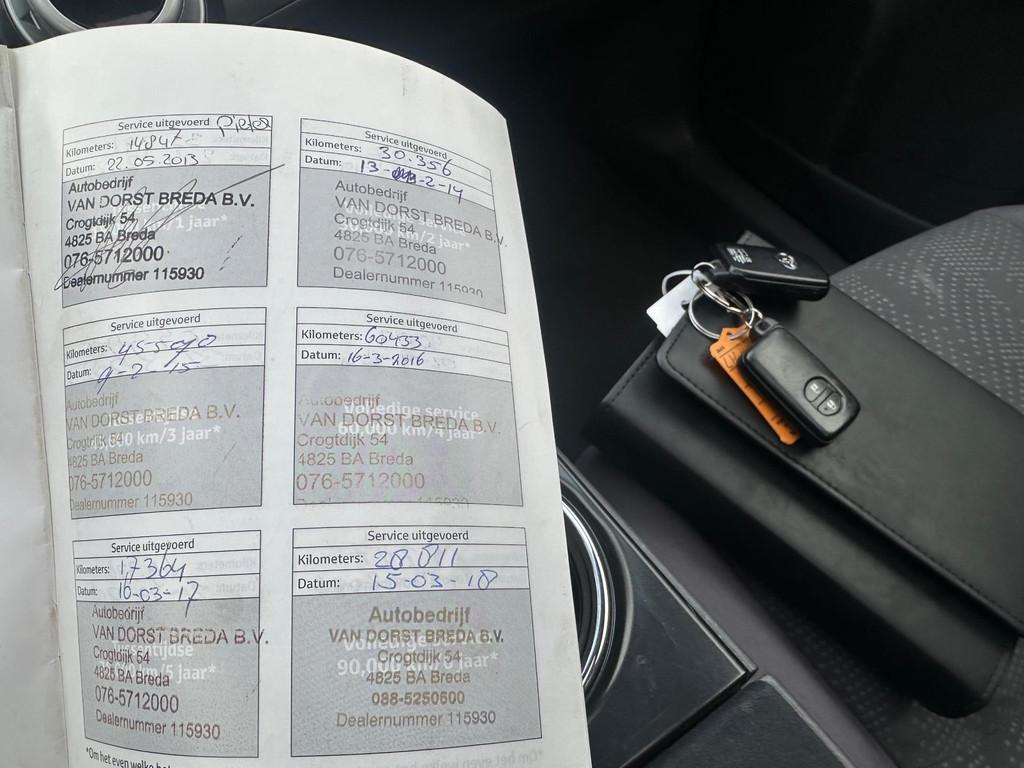 Service uitgevoerd
Kilometers: 14847
Datum: 22.05.2013
Autobedrijf
VAN DORST BREDA B.V.
Crogtdijk 54
/1 jaar*
4825 BA Breda
076-5712000
Dealernummer 115930
Service uitgevoerd
Kilometers: 30.356
Datum: 13-2-14
Autobedrijf
VAN DORST BREDA B.V.
Crogtdijk 54
km/2 jaar*
4825 BA Breda
076-5712000
Dealernummer 115930
Service uitgevoerd
Kilometers: 45590
Datum: 9-2-15
Autobedrijf
VAN DORST BREDA B.V.
Crogtdijk 54
km/3 jaar*
4825 BA Breda
076-5712000
Dealernummer 115930
Service uitgevoerd
Kilometers: 60433
Datum: 16-3-2016
Autobedrijf
Volledige service
VAN DORST BREDA B.V.
60,000 km/4 jaar
Crogtdijk 54
4825 BA Breda
076-5712000
Dealernummer 115930
Service uitgevoerd
Kilometers: 17364
Datum: 16-03-17
Autobedrijf
VAN DORST BREDA B.V.
Tussentijdse
Crogtdijk 54
km/5 jaar*
4825 BA Breda
076-5712000
Dealernummer 115930
Service uitgevoerd
Kilometers: 28811
Datum: 15-03-18
Autobedrijf
VAN DORST BREDA B.V.
Volledige
Crogtdijk 54
90,000 km/6 jaar*
4825 BA Breda
088-5250600
Dealernummer 115930
*Om het even welke